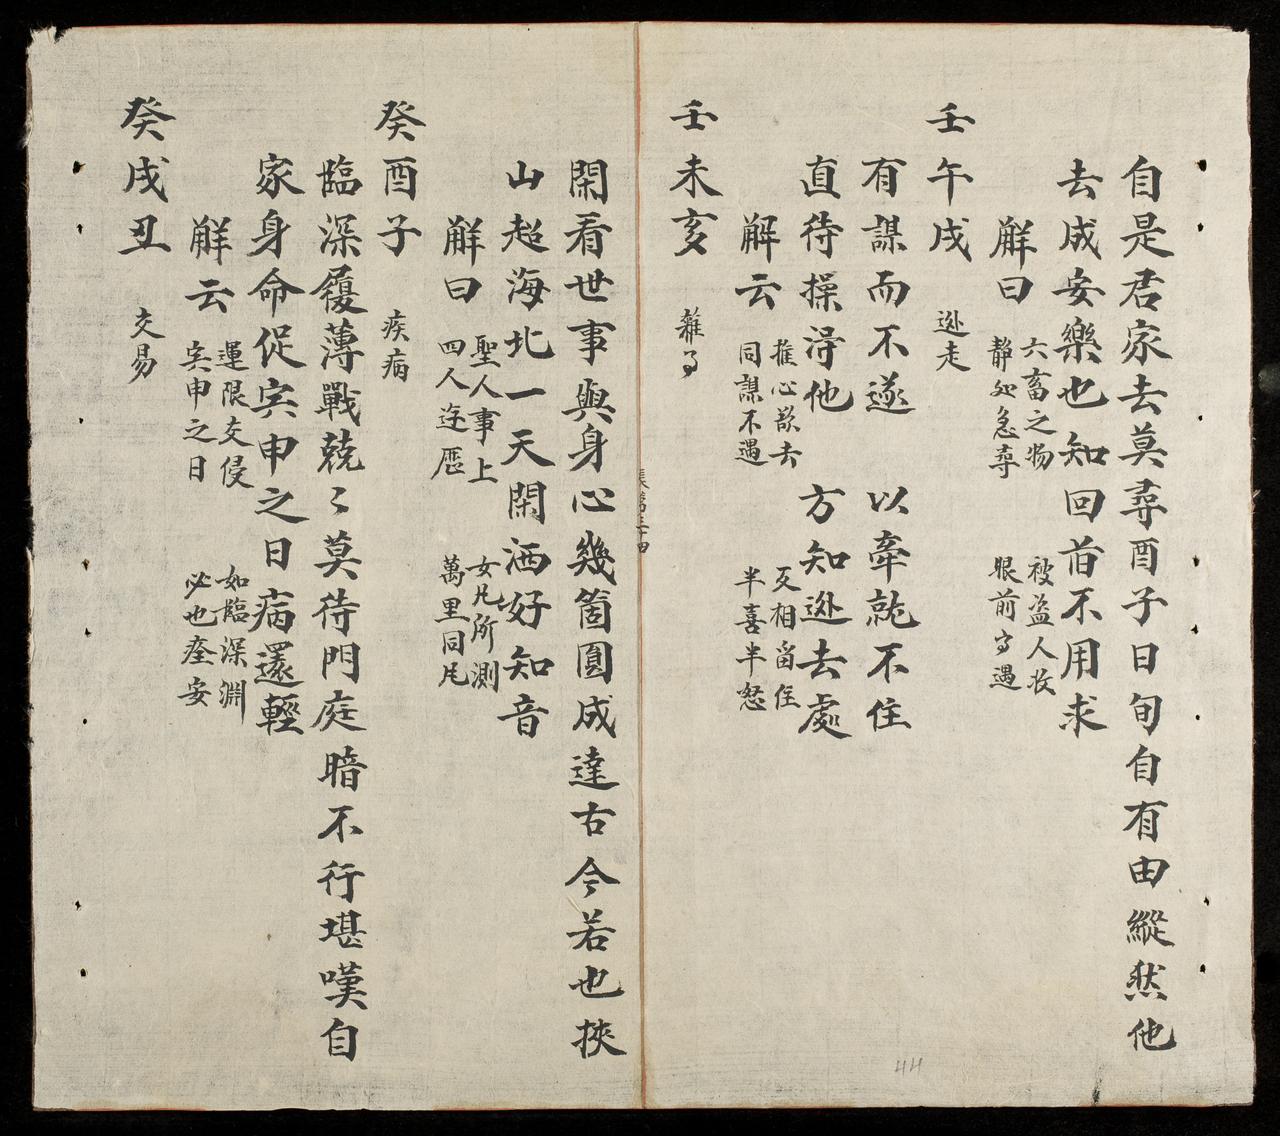 自是君家去莫尋酉子日旬自有由縱然他
去成安樂也知回首不用求
解曰
六畜之物 被盗人收
静処急尋 眼前了遇
壬午戌 迯走
有謀而不遂 以牽就不住
直待操淂他 方知迯去處
解云
推心欲去 互相留住
同謀不遇 半喜半怒
壬未亥 雜了
張第三十四
閑看世事與身心幾箇圓成達古今若也挾
山超海北一天閑洒好知音
解曰
聖人事上 女凢所測
四人迍歴 萬里同凢
癸酉子 疾病
臨深履薄戰兢〻莫待門庭暗不行堪嘆自
家身命促寅申之日病還輕
解云
運限交侵 如臨深淵
寅申之日 必也痊安
癸戌丑 交易
44